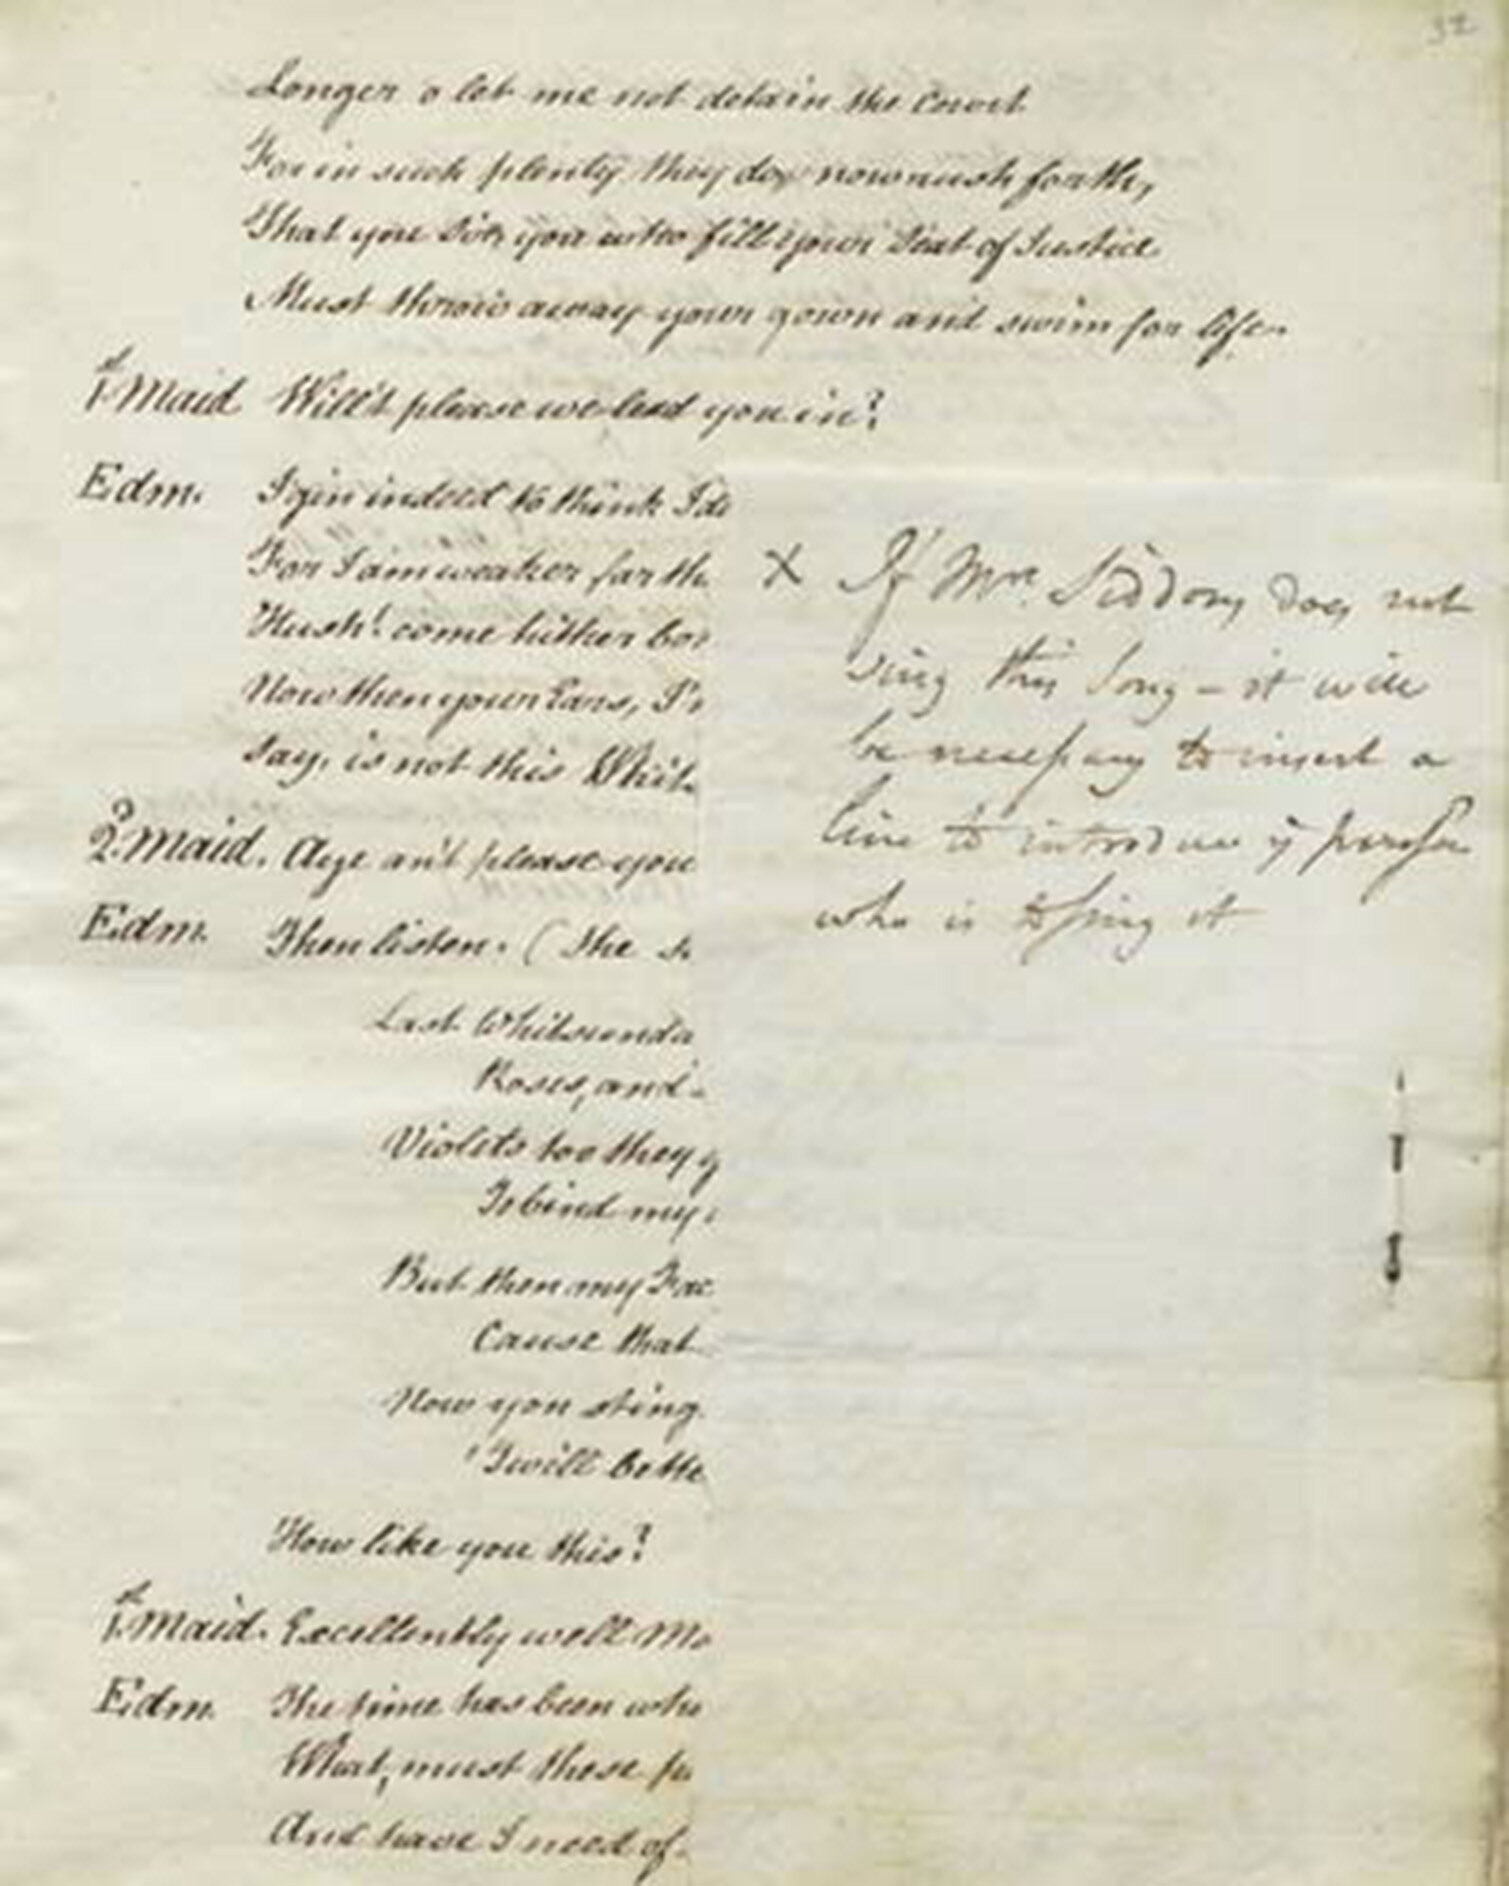 32
Longer o let me not detain the Court
For in such plenty they do now rush forth,
That you Sir, you who fill your Seat of Justice
Must throw away your gown and swim for life.
1st Maid Will't please we lead you in?
Edm. I gin indeed to think I do
For I am weaker far th
Hush! come hither bo
Now then your Ears, I'
Say, is not this Whit
2d Maid. Aye an't please you
Edm. Then listen. (She s
Last Whitsunda
Roses, and
Violets too they g
To bind my
But then my Fac
Cause that
Now you sting
I will bette
How like you this?
1st Maid. Excellently well Ma
Edm. The time has been whe
What, must these
And have I need of
X If Mrs. Siddons does not
sing this Song - it will
be necessary to insert a
line to introduce ye person
who is to sing it